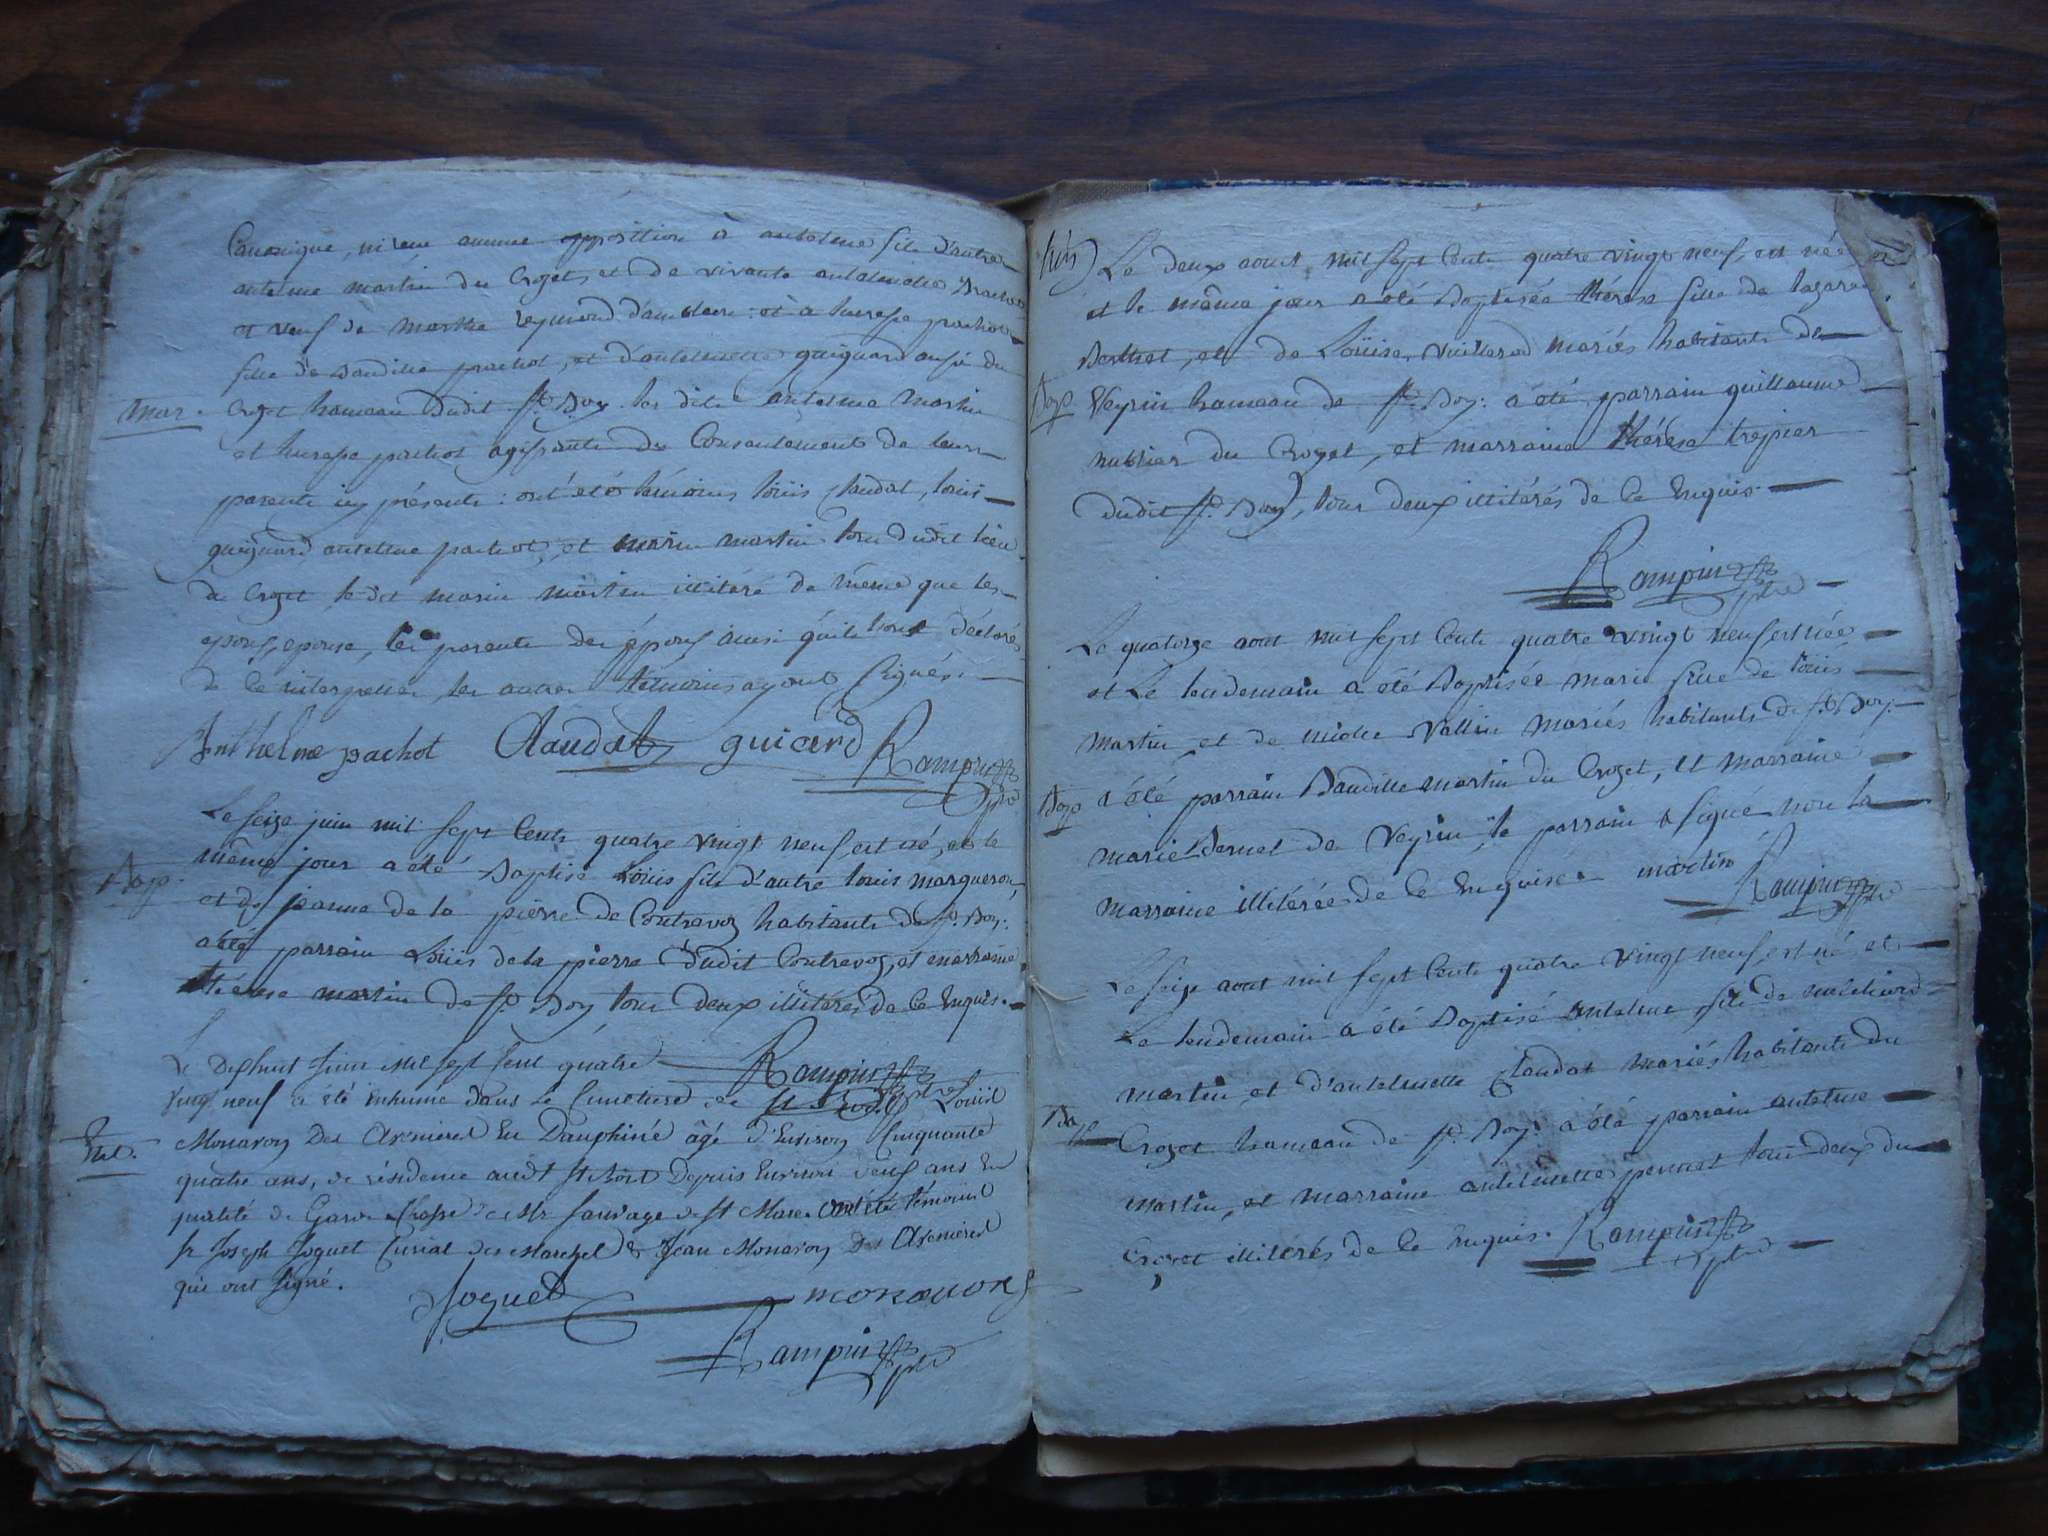 Canonique, ni eue aucune opposition à antelme fils d'autre
antelme martin du Crozet, et de vivante antelmette
et veuf de Marthe reymond d'ambleon: et à pachot
fille de Baudille pachot, et d'antelmette guiguard aussi du
Mar. Crozet hameau dudit St. Boy les dits antelme Martin
et pachot agissants du Consentement de leurs
parents icy présents: ont été témoins loüis claudat, loüis
guiguard antelme pachot, et marin martin tous dudit lieu
de Crozet le dit marin martin illitéré de même que les
epoux, epouse, les parents des époux ainsi qu'ils l'ont déclaré
de ce interpellés les autres témoins ayant signés.
Anthelme pachot Claudat guicard Rampin
ptre
Le seize juin mil sept cents quatre vingt neuf est né, et le
Bap. même jour a été Baptisé Loüis fils d'autre louis marqueron,
et de jeanne de la pierre de Contrevoz habitants de St. Boy:
a été parrain Loüis de la pierre dudit Contrevoz, et marraine
thérese martin de St. Boy tous deux illitérés de ce Enquis.
Rampin ptre
Le Dixhuit Juin Mil sept Cent quatre
Vingt neuf a été inhumé dans le Cimetiere de Loüis
Ent. Monavon Des Avenieres En Dauphiné âgé d'Environ Cinquante
quatre ans, de résidence audt St Bois Depuis Environ neuf ans En
qualité de Garde Chasse de Mr Sauvage de St Marc ont été témoins
Sr Joseph Joguet Curial des Marches & Jean Monavon des Avenieres
qui ont signé.
Joguet monavon
Rampin
ptre
Le deux aout mil sept Cents quatre vingt neuf, est née
et le même jour a été Baptisée thérese fille de lazare
Berthet, et de Loüise Vuillerod mariés habitants de
Bap Veyrin hameau de St. Boy: a été parrain guillaume
du Crozet, et marraine thérèse trepier
dudit St. Boy, tous deux illitérés de ce Enquis.
Rampin
ptre
Le quatorze aout mil sept Cents quatre vingt neuf est née
et Le lendemain a été Baptisée Marie fille de loüis
Martin et de Vallin mariés habitants de St. Boy:
Bap a été parrain Baudille martin du Crozet, et marraine
marie Bernet de Veyrin, le parrain a signé non la
marraine illitérée de ce Enquise. martin Rampin
ptre
Le seize aout mil sept Cents quatre vingt neuf est né et
Le lendemain a été Baptisé antelme fils de
martin et d'antelmette Claudat mariés habitants du
Bap Crozet hameau de St. Boy: a été parrain antelme
martin, et marraine antelmette pernet tous deux du
Crozet illitérés de ce Enquis. Rampin
ptre